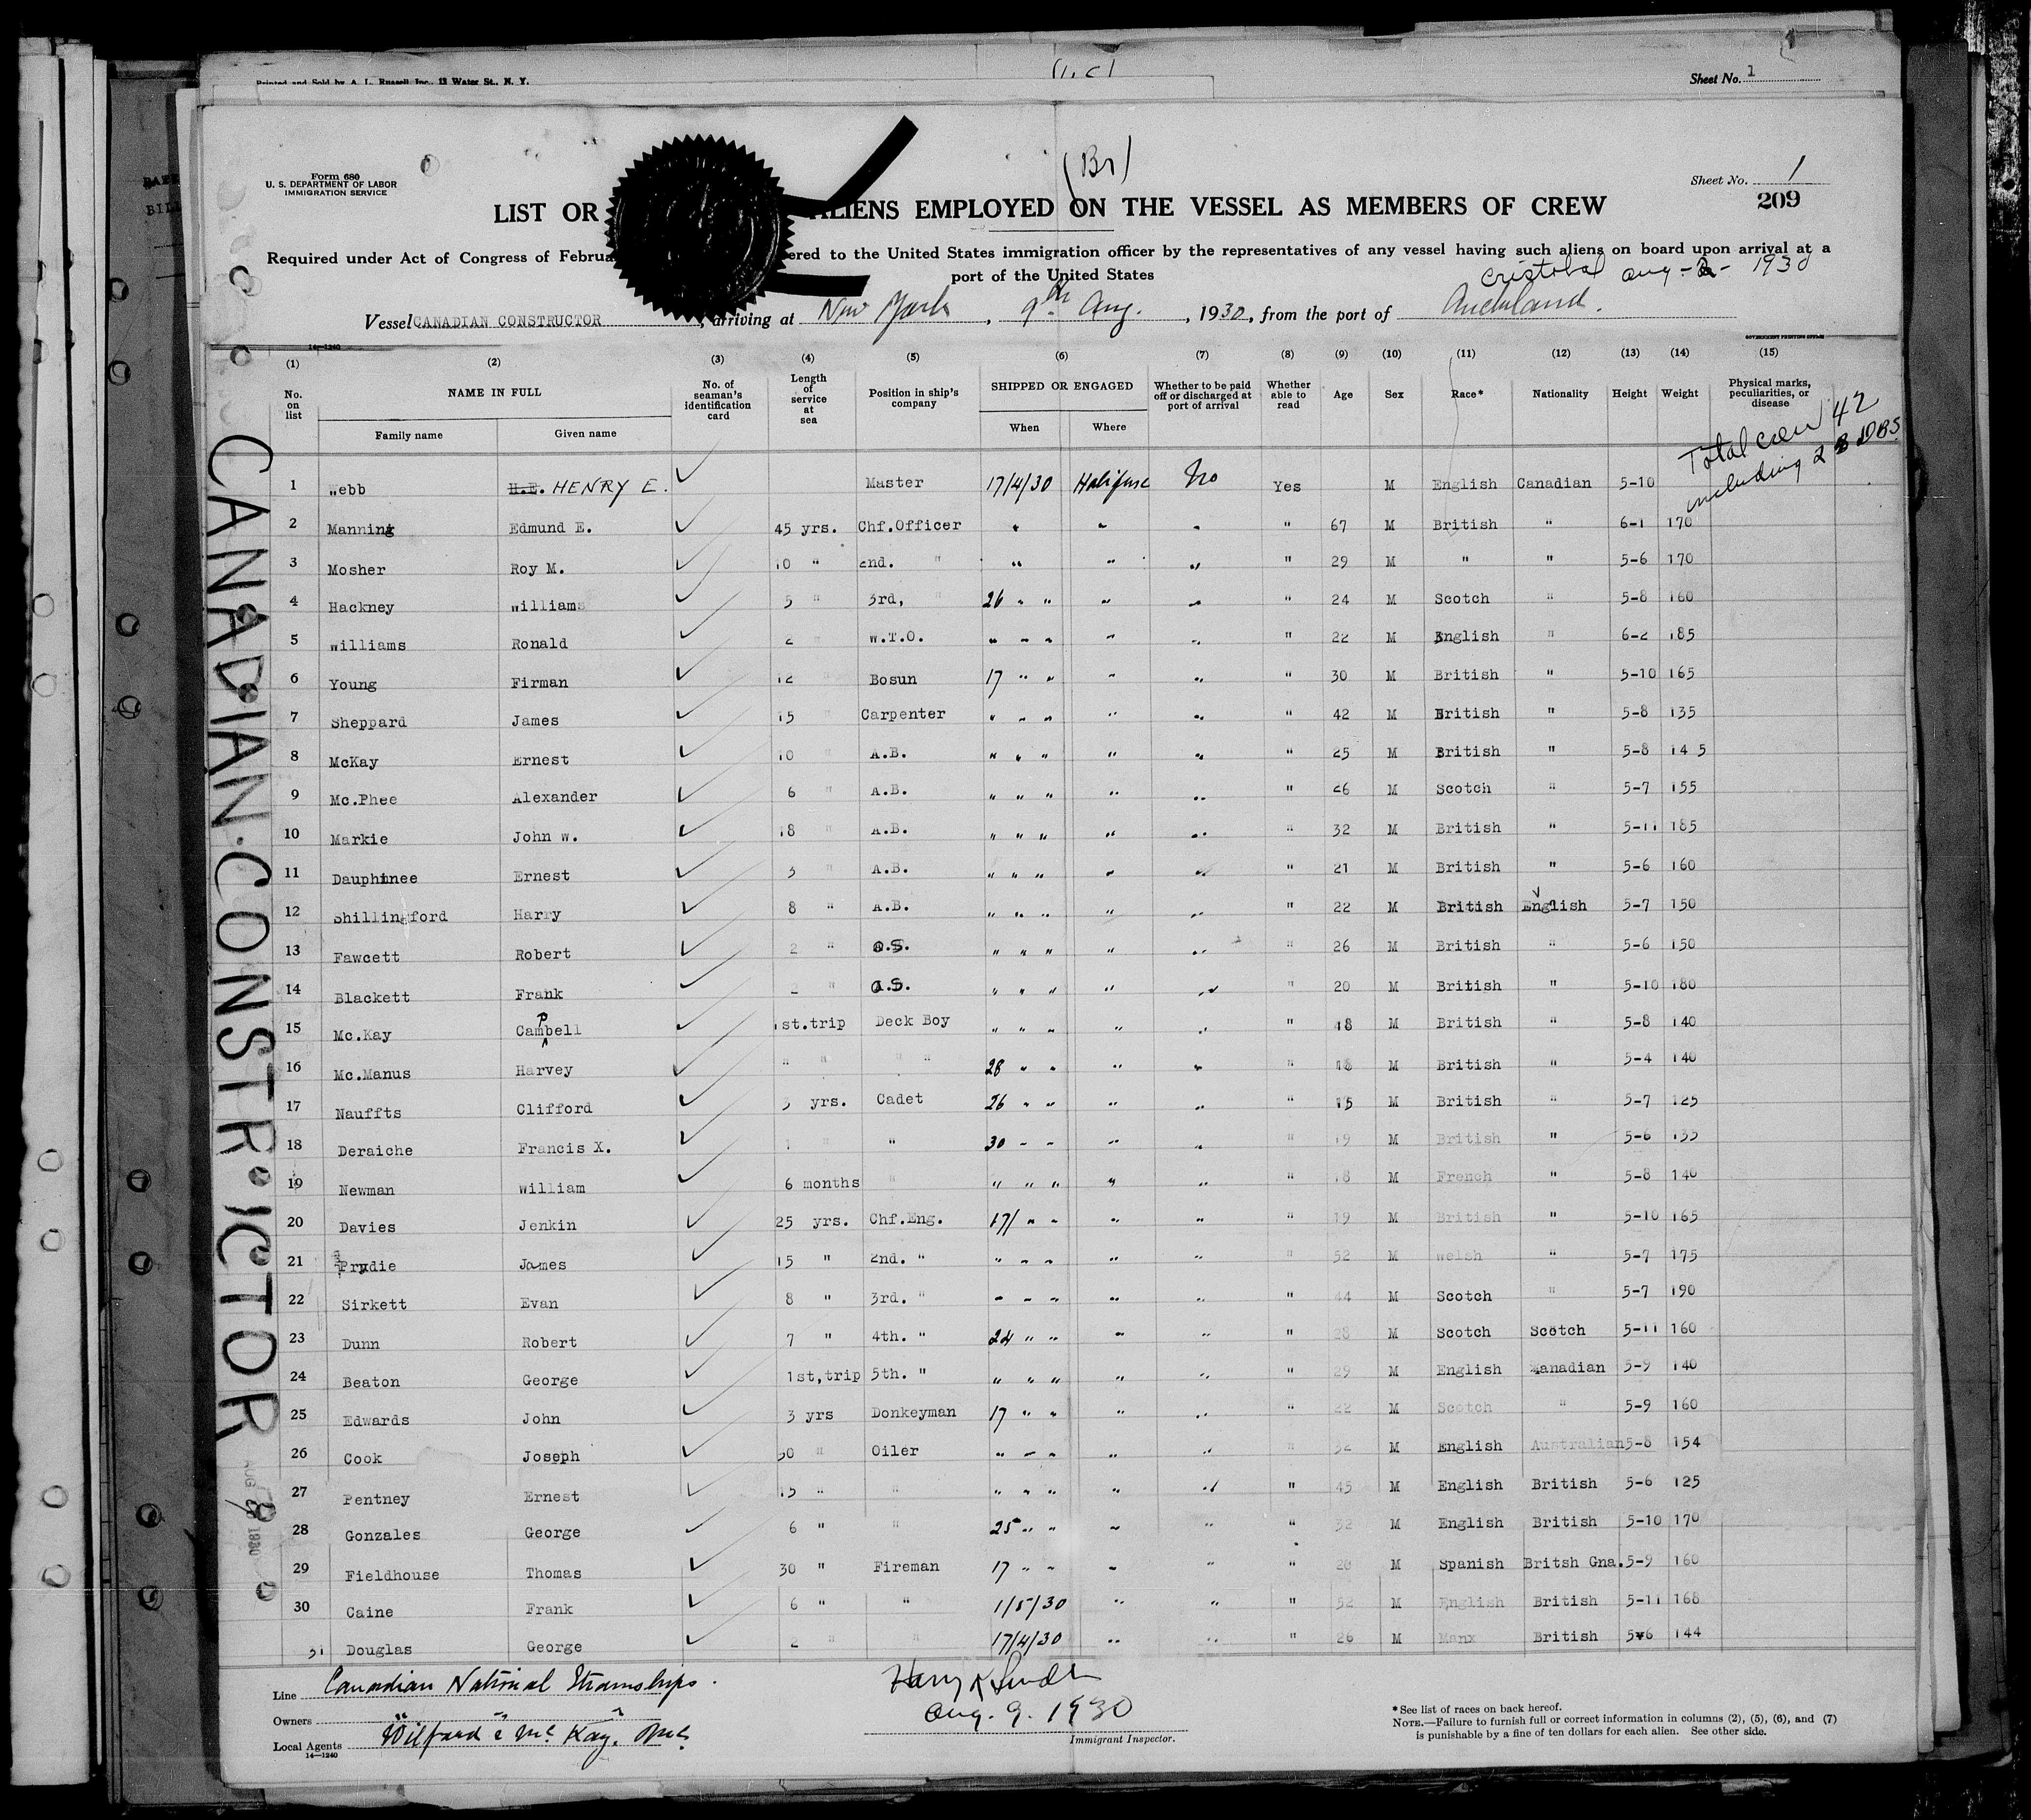 Printed and Sold by A. L. Russell Inc., 13 Water St., N. Y.
Sheet No. 1
(Br)
Form 680
U. S. DEPARTMENT OF LABOR
IMMIGRATION SERVICE
Sheet No. 1
209
LIST OR ALIENS EMPLOYED ON THE VESSEL AS MEMBERS OF CREW
Required under Act of Congress of Februa ered to the United States immigration officer by the representatives of any vessel having such aliens on board upon arrival at a
port of the United States
Cristobal Aug - 2 - 1930
Vessel CANADIAN CONSTRUCTOR, arriving at New York, 9th Aug., 1930, from the port of Auckland.
14—1240
GOVERNMENT PRINTING OFFICE
(1) (2) (3) (4) (5) (6) (7) (8) (9) (10) (11) (12) (13) (14) (15)
No. on list NAME IN FULL Family name Given name No. of seaman's identification card Length of service at sea Position in ship's company SHIPPED OR ENGAGED When Where Whether to be paid off or discharged at port of arrival Whether able to read Age Sex Race* Nationality Height Weight Physical marks, peculiarities, or disease
Total crew 42
including 2 DBS
1 Webb H.E. HENRY E. Master 17/4/30 Halifax No Yes M English Canadian 5-10
2 Manning Edmund E. 45 yrs. Chf.Officer " " " " 67 M British " 6-1 170
3 Mosher Roy M. 10 " 2nd. " " " " " 29 M " " 5-6 170
4 Hackney Williams 5 " 3rd, " 26 " " " " " 24 M Scotch " 5-8 160
5 Williams Ronald 2 " W.T.O. " " " " " " 22 M English " 6-2 185
6 Young Firman 12 " Bosun 17 " " " " " 30 M British " 5-10 165
7 Sheppard James 15 " Carpenter " " " " " " 42 M British " 5-8 135
8 McKay Ernest 10 " A.B. " " " " " " 25 M British " 5-8 145
9 Mc.Phee Alexander 6 " A.B. " " " " " " 26 M Scotch " 5-7 155
10 Markie John W. 18 " A.B. " " " " " " 32 M British " 5-11 185
11 Dauphinee Ernest 3 " A.B. " " " " " " 21 M British " 5-6 160
12 Shillingford Harry 8 " A.B. " " " " " " 22 M British English 5-7 150
13 Fawcett Robert 2 " O.S. " " " " " " 26 M British " 5-6 150
14 Blackett Frank 2 " O.S. " " " " " " 20 M British " 5-10 180
15 Mc.Kay Campbell 1st.trip Deck Boy " " " " " " 18 M British " 5-8 140
16 Mc.Manus Harvey " " " " 28 " " " " " 18 M British " 5-4 140
17 Nauffts Clifford 3 yrs. Cadet 26 " " " " " 15 M British " 5-7 125
18 Deraiche Francis X. 1 " " 30 " " " " " 19 M British " 5-6 135
19 Newman William 6 months " " " " " " " 18 M French " 5-8 140
20 Davies Jenkin 25 yrs. Chf.Eng. 17/ " " " " " 19 M British " 5-10 165
21 Prydie James 15 " 2nd. " " " " " " " 52 M Welsh " 5-7 175
22 Sirkett Evan 8 " 3rd. " " " " " " " 44 M Scotch " 5-7 190
23 Dunn Robert 7 " 4th. " 24 " " " " " 28 M Scotch Scotch 5-11 160
24 Beaton George 1st,trip 5th. " " " " " " " 29 M English Canadian 5-9 140
25 Edwards John 3 yrs Donkeyman 17 " " " " " 22 M Scotch " 5-9 160
26 Cook Joseph 30 " Oiler " " " " " " 32 M English Australian 5-8 154
27 Pentney Ernest 15 " " " " " " " " 45 M English British 5-6 125
28 Gonzales George 6 " " 25 " " " " " 32 M English British 5-10 170
29 Fieldhouse Thomas 30 " Fireman 17 " " " " " 20 M Spanish Britsh Gna. 5-9 160
30 Caine Frank 6 " " 1/5/30 " " " 52 M English British 5-11 168
31 Douglas George 2 " " 17/4/30 " " " 26 M Manx British 5-6 144
CANADIAN CONSTRUCTOR
AUG 9 1930
Line Canadian National Steamships.
Owners " " "
Local Agents Wilford & McKay. Inc.
14—1240
Harry
Aug. 9. 1930
Immigrant Inspector.
* See list of races on back hereof.
NOTE.—Failure to furnish full or correct information in columns (2), (5), (6), and (7)
is punishable by a fine of ten dollars for each alien. See other side.